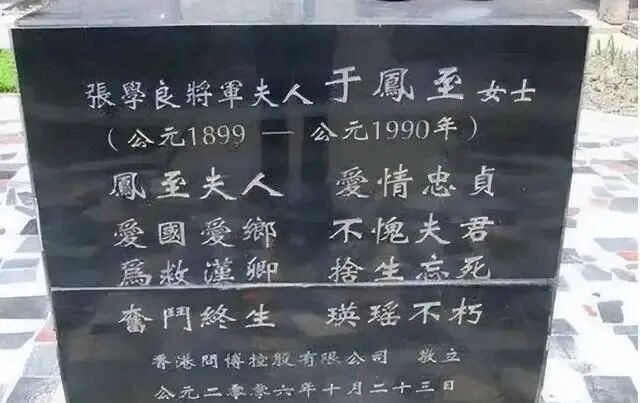 張學良將軍夫人于鳳至女士
（公元1899 — 公元1990年）
鳳至夫人 愛情忠貞
愛國愛鄉 不愧夫君
爲救漢卿 捨生忘死
奮鬥終生 瑛瑶不朽
香港問博控股有限公司 敬立
公元二零零六年十月二十三日